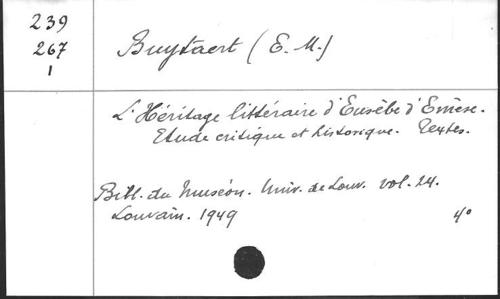 239
267
1
Buytaert (E. M.)
L'Héritage littéraire d'Eusèbe d'Emèse.
Etude critique et historique. Textes.
Bibl. du Muséon. Univ. de Louv. vol. 24.
Louvain. 1949 4°